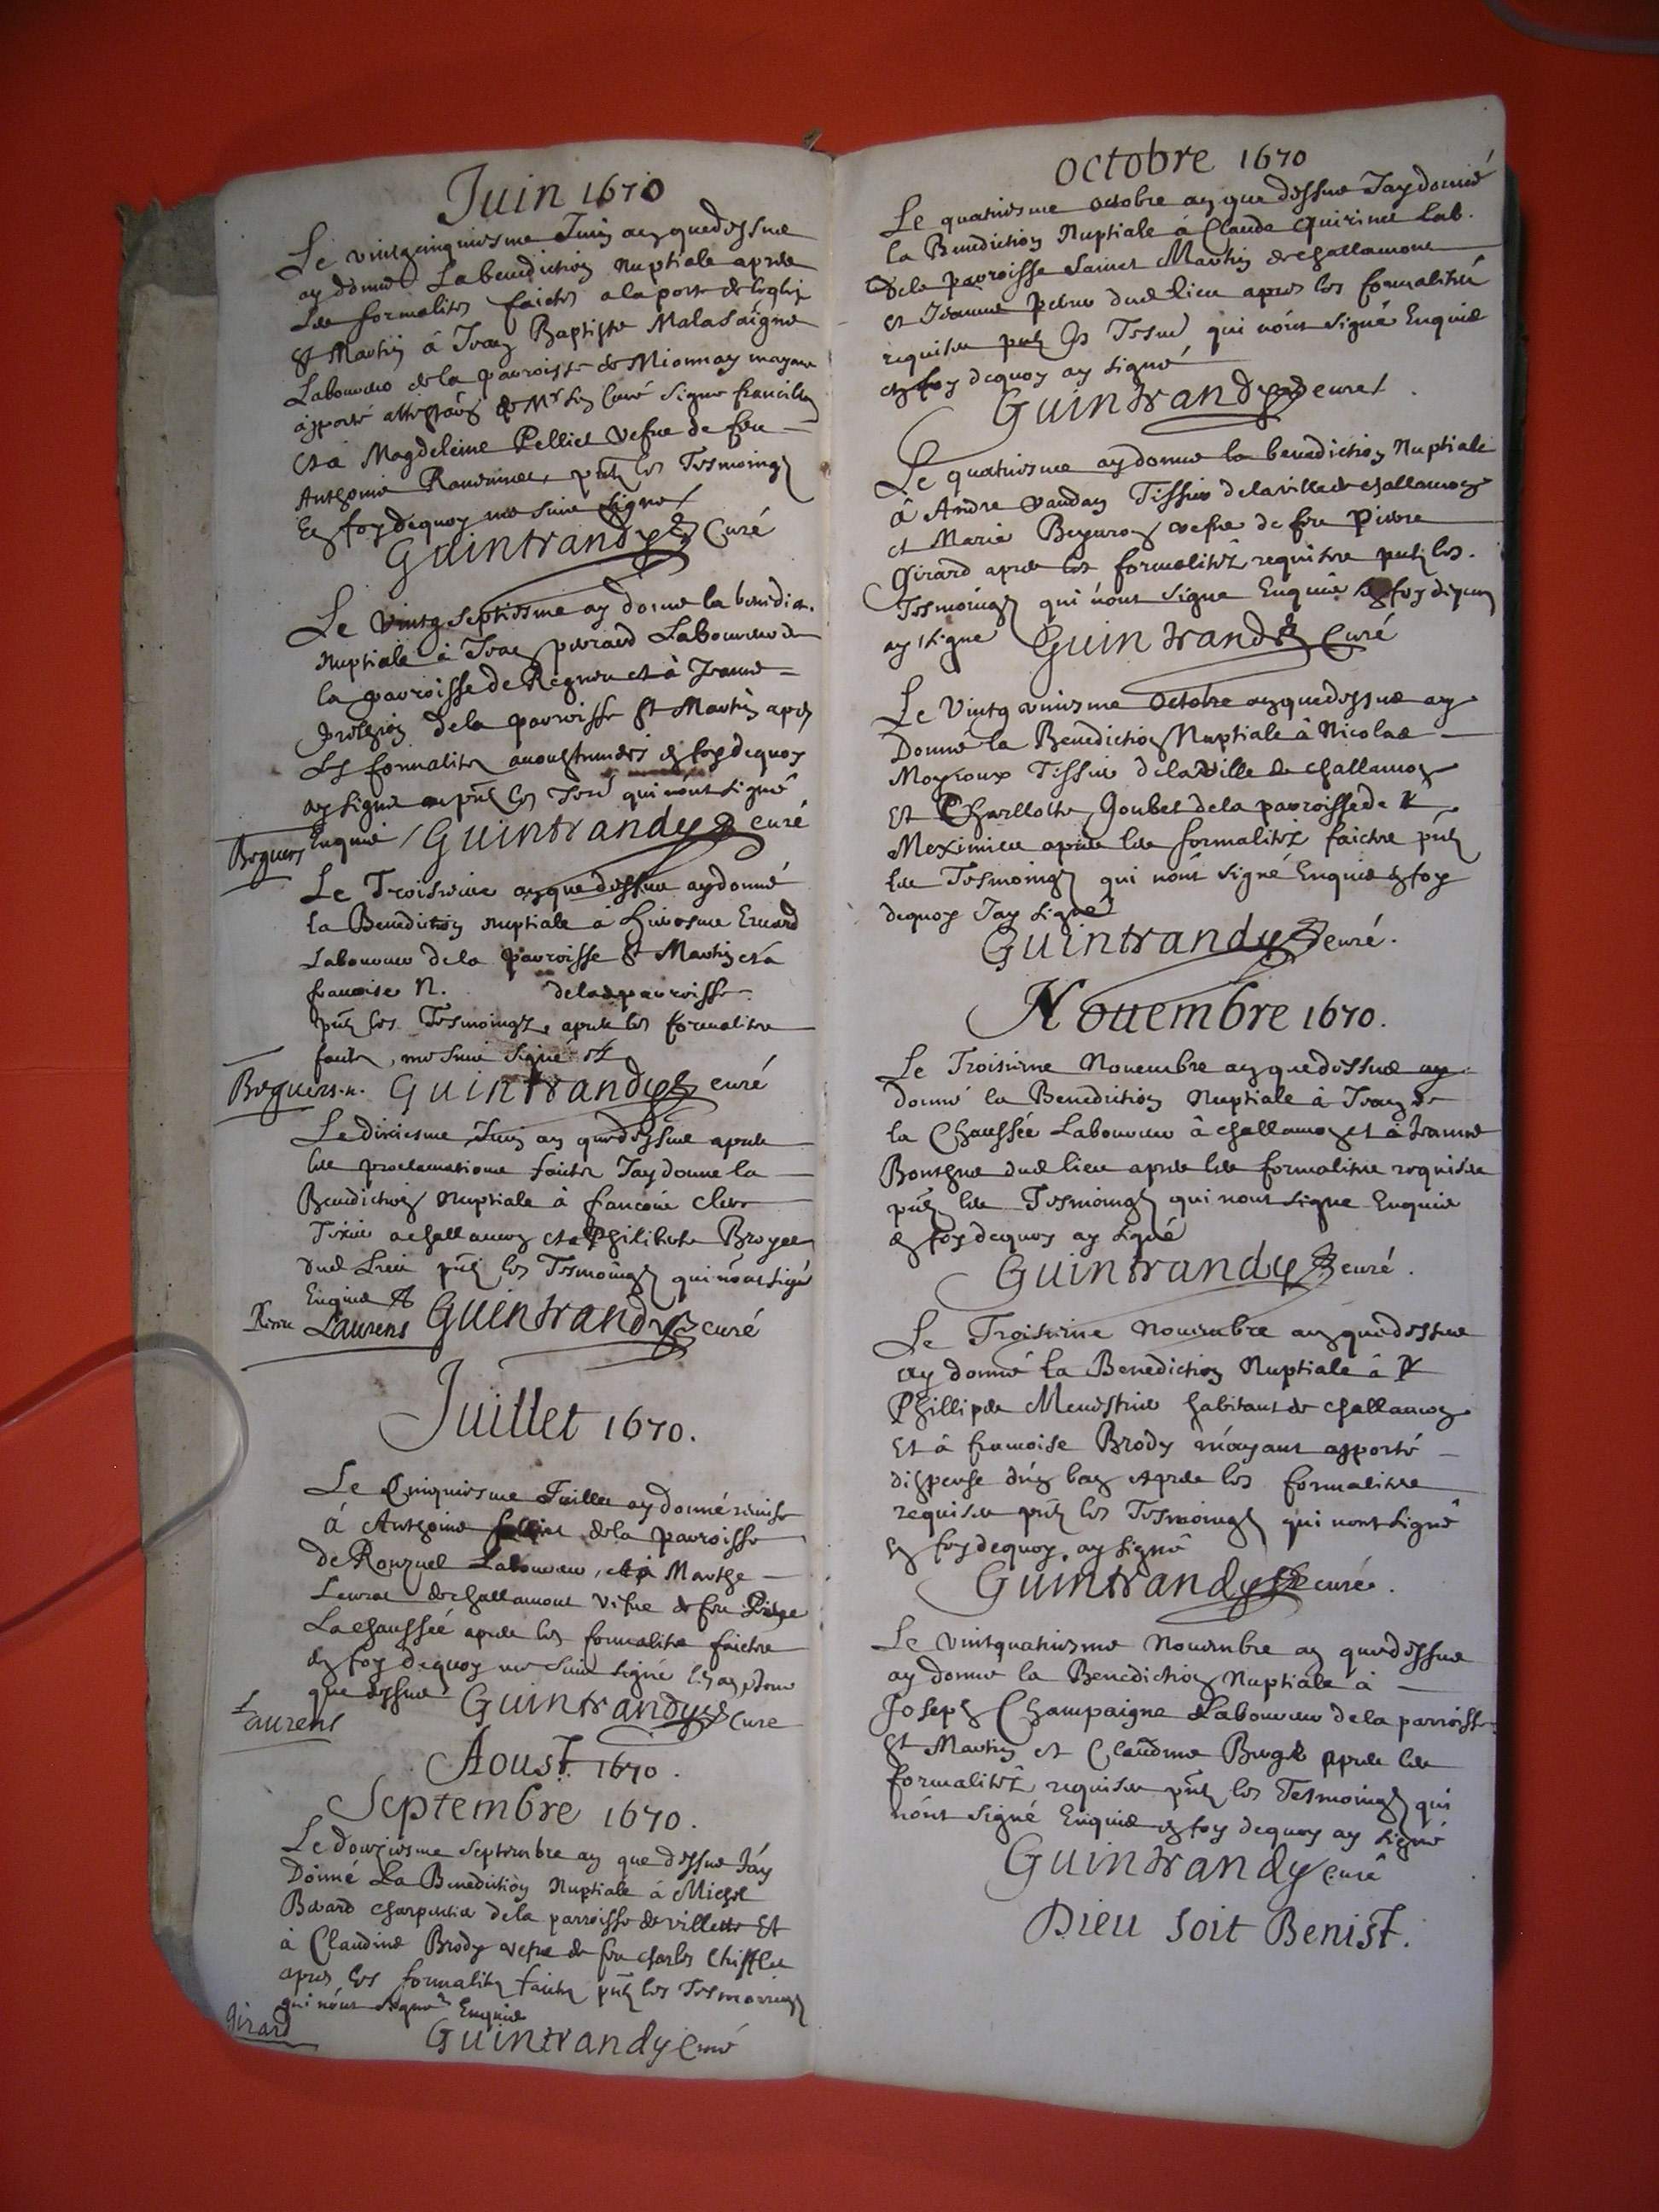 Juin 1670
Le vintgcinquiesme Juin an quedessus
ay donné La benediction nuptiale apres
les formalites faictes a la porte de leglise
St Martin à Jean Baptiste Malasaigne
Laboureur de la parroisse de Mionnay mayant
apporté attestaon de Mr son Curé signe francillon
et à Magdeleine Pelliet vefue de feu
Anthoine put les Tesmoings
En foy dequoy me suis signé
Guintrandy Curé
Le vintg septiesme ay donné la benedion.
Nuptiale à Jean perrard Laboureur de
la parroisse de et à Jeanne
de la parroisse St Martin apres
Les formalites en foy dequoy
ay signé put les qui n'ont signé
Enquis Guintrandy curé
Beguers
Le Troisiesme an que dessus ay donné
la Benediction nuptiale à Hierosme Evrard
Laboureur de la parroisse St Martin et à
francoise N. de lad parroisse
put les Tesmoings, apres les formalites
faites, me suis signé
Beguers. Guintrandy curé
Le dixiesme Juin an que dessus apres
les proclamations faites Jay donne la
Benediction Nuptiale à francois Clerc
Tixier a challamon et a Philiberte Broyer
dud Lieu put les Tesmoings qui n'ont signé
Enquis
Laurens Guintrandy curé
Juillet 1670.
Le Cinquiesme Juillet ay donné
à Anthoine de la parroisse
de Laboureur, et à Marthe
de challamont vefue de feu
La chaussée apres les formalites faictes
en foy dequoy me suis signé les an et Jour
que dessus Guintrandy Cure
Laurens
Aoust 1670.
Septembre 1670.
Le douziesme Septembre an que dessus Jay
Donné La Benediction Nuptiale à Michel
charpentier de la parroisse de villette Et
à Claudine Brody vefue de feu charles Chifflet
apres les formalites faites put les Tesmoings
qui n'ont signé Enquis
Girard
Guintrandy Curé
octobre 1670
Le quatriesme octobre an que dessus Jay donné
la Benediction Nuptiale à Claude Lab.
de la parroisse Sainct Martin de challamont
et Jeanne dud lieu apres les formalites
requises put les qui n'ont signé Enquis
en foy dequoy ay signé
Guintrandy curé.
Le quatriesme ay donné la benediction Nuptiale
à Andre Tissier de la ville de challamon
et Marie vefue de feu Pierre
Girard apres les formalités requises put les.
Tesmoings qui n'ont signe Enquis en foy dequoy
ay signe Guintrandy Curé
Le Vintg octobre an quedessus ay
Donné la Benediction Nuptiale à Nicolas
Moyroux Tissier de la ville de challamon
Et Charllotte Goubet de la parroisse de
Meximieu apres les formalités faictes put
les Tesmoings qui n'ont signé Enquis en foy
dequoy Jay signé
Guintrandy curé.
Nouembre 1670.
Le Troisiesme Nouembre an quedessus ay
donné la Benediction Nuptiale à Jean de
la Chaussée Laboureur à challamon et à Jeanne
dud lieu apres les formalites requises
put les Tesmoings qui n'ont signe Enquis
en foy dequoy ay signé
Guintrandy curé.
Le Troisiesme Nouembre an quedessus
ay donné la Benediction Nuptiale à
Phillipes Menestrier habitant de challamon
Et à francoise Brody m'ayant apporté
dispense d'un ban apres les formalites
requises put les Tesmoings qui n'ont signé
En foy dequoy, ay signé
Guintrandy curé.
Le vintquatriesme Nouembre an que dessus
ay donné la Benediction Nuptiale à
Joseph Champaigne Laboureur de la parroisse
St Martin et Claudine apres les
formalités requises put les Tesmoings qui
n'ont signé Enquis en foy dequoy ay signé
Guintrandy curé
Dieu soit Benist.